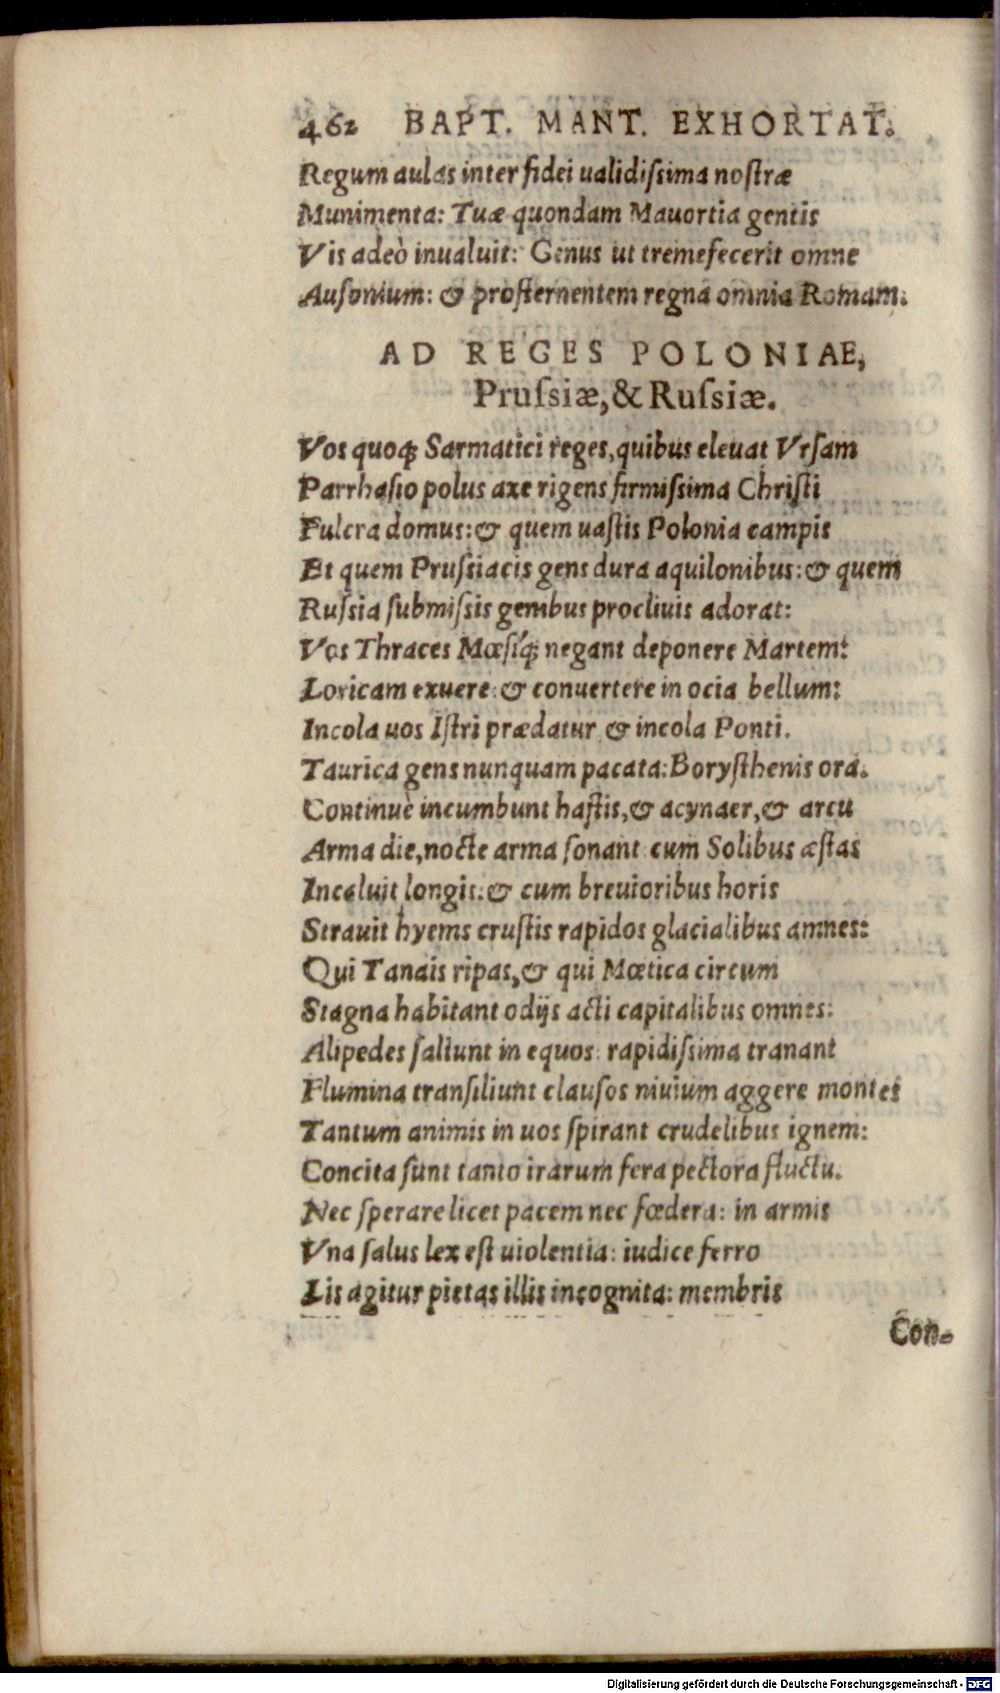 462 BAPT. MANT. EXHORTAT.
Regum aulas inter fidei ualidiſsima noſtræ
Munimenta: Tuæ quondam Mauortia gentis
Vis adeò inualuit: Genus ut tremefecerit omne
Auſonium: & proſternentem regna omnia Romam.
AD REGES POLONIAE,
Pruſsiæ, & Ruſsiæ.
Vos quoq; Sarmatici reges, quibus eleuat Vrſam
Parrhaſio polus axe rigens firmiſsima Chriſti
Fulcra domus: & quem uaſtis Polonia campis
Et quem Pruſsiacis gens dura aquilonibus: & quem
Ruſsia ſubmiſsis genibus procliuis adorat:
Vos Thraces Mœſiq́; negant deponere Martem:
Loricam exuere: & conuertere in ocia bellum:
Incola uos Iſtri prædatur & incola Ponti.
Taurica gens nunquam pacata: Boryſthenis ora.
Continuè incumbunt haſtis, & acynaer, & arcu
Arma die, nocte arma ſonant: cum Solibus æſtas
Incaluit longis: & cum breuioribus horis
Strauit hyems cruſtis rapidos glacialibus amnes:
Qui Tanais ripas, & qui Mœtica circum
Stagna habitant odijs acti capitalibus omnes:
Alipedes ſaliunt in equos: rapidiſsima tranant
Flumina tranſiliunt clauſos niuium aggere montes
Tantum animis in uos ſpirant crudelibus ignem:
Concita ſunt tanto irarum fera pectora fluctu.
Nec ſperare licet pacem nec fœdera: in armis
Vna ſalus lex eſt uiolentia: iudice ferro
Lis agitur pietas illis incognita: membris
Con-
Digitalisierung gefördert durch die Deutsche Forschungsgemeinschaft - DFG